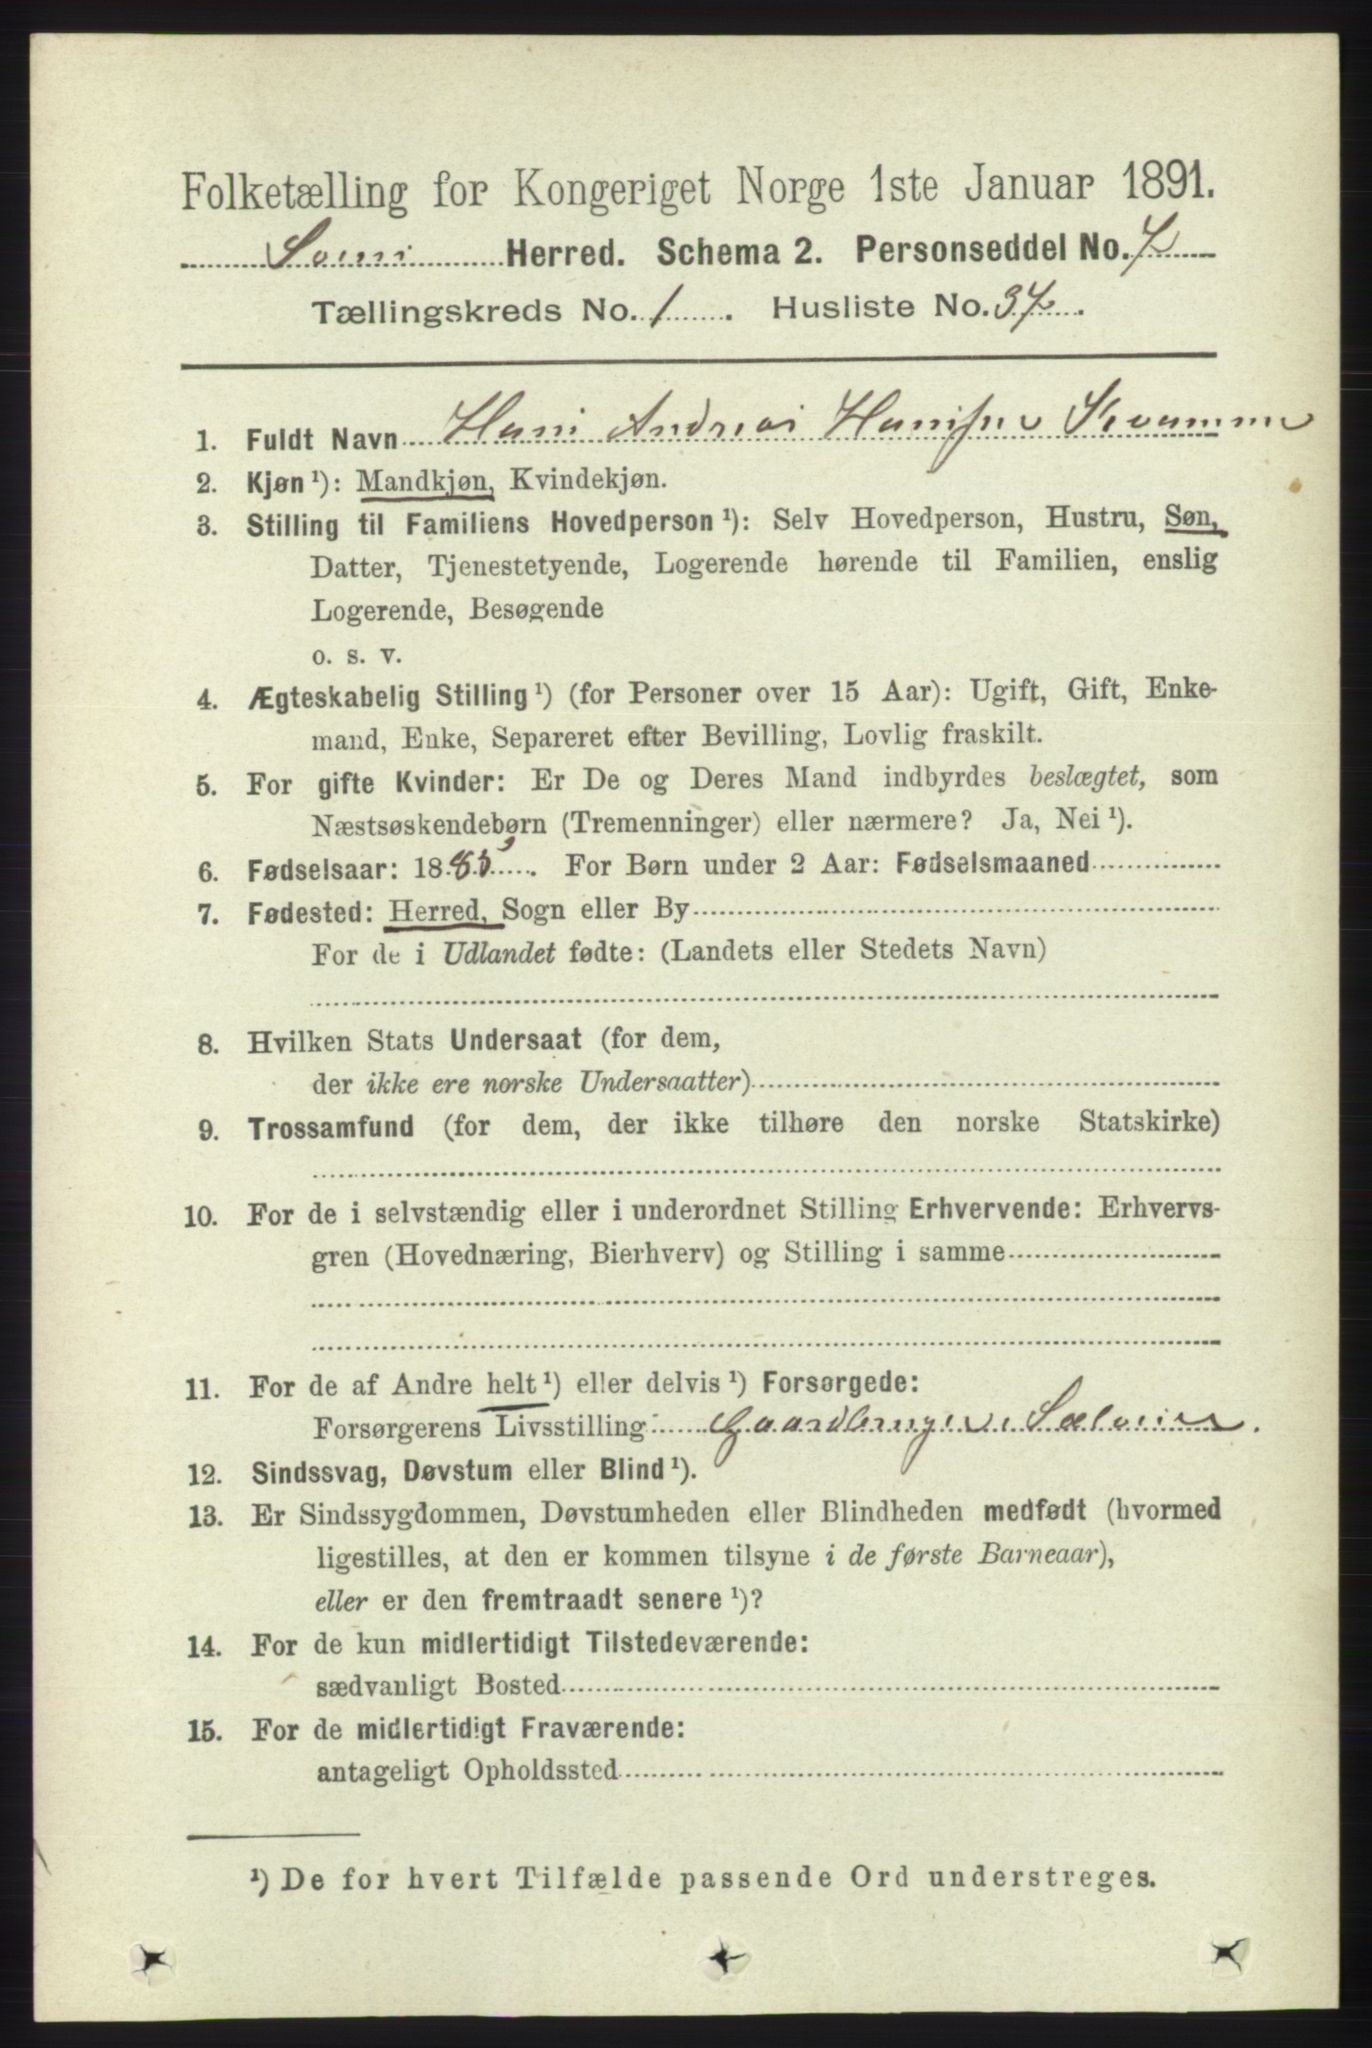 Folketælling for Kongeriget Norge 1ste Januar 1891.
Herred. Schema 2. Personseddel No. 7
Tællingskreds No. 1. Husliste No. 37.
1. Fuldt Navn Hans Andreas Hansen Kvamme
2. Kjøn ¹): Mandkjøn, Kvindekjøn.
3. Stilling til Familiens Hovedperson ¹): Selv Hovedperson, Hustru, Søn,
Datter, Tjenestetyende, Logerende hørende til Familien, enslig
Logerende, Besøgende
o. s. v.
4. Ægteskabelig Stilling ¹) (for Personer over 15 Aar): Ugift, Gift, Enke-
mand, Enke, Separeret efter Bevilling, Lovlig fraskilt.
5. For gifte Kvinder: Er De og Deres Mand indbyrdes beslægtet, som
Næstsøskendebørn (Tremenninger) eller nærmere? Ja, Nei ¹).
6. Fødselsaar: 1885. For Børn under 2 Aar: Fødselsmaaned
7. Fødested: Herred, Sogn eller By
For de i Udlandet fødte: (Landets eller Stedets Navn)
8. Hvilken Stats Undersaat (for dem,
der ikke ere norske Undersaatter)
9. Trossamfund (for dem, der ikke tilhøre den norske Statskirke)
10. For de i selvstændig eller i underordnet Stilling Erhvervende: Erhvervs-
gren (Hovednæring, Bierhverv) og Stilling i samme
11. For de af Andre helt ¹) eller delvis ¹) Forsørgede:
Forsørgerens Livsstilling: Gaardbruger Selveier.
12. Sindssvag, Døvstum eller Blind ¹).
13. Er Sindssygdommen, Døvstumheden eller Blindheden medfødt (hvormed
ligestilles, at den er kommen tilsyne i de første Barneaar),
eller er den fremtraadt senere ¹)?
14. For de kun midlertidigt Tilstedeværende:
sædvanligt Bosted
15. For de midlertidigt Fraværende:
antageligt Opholdssted
¹) De for hvert Tilfælde passende Ord understreges.